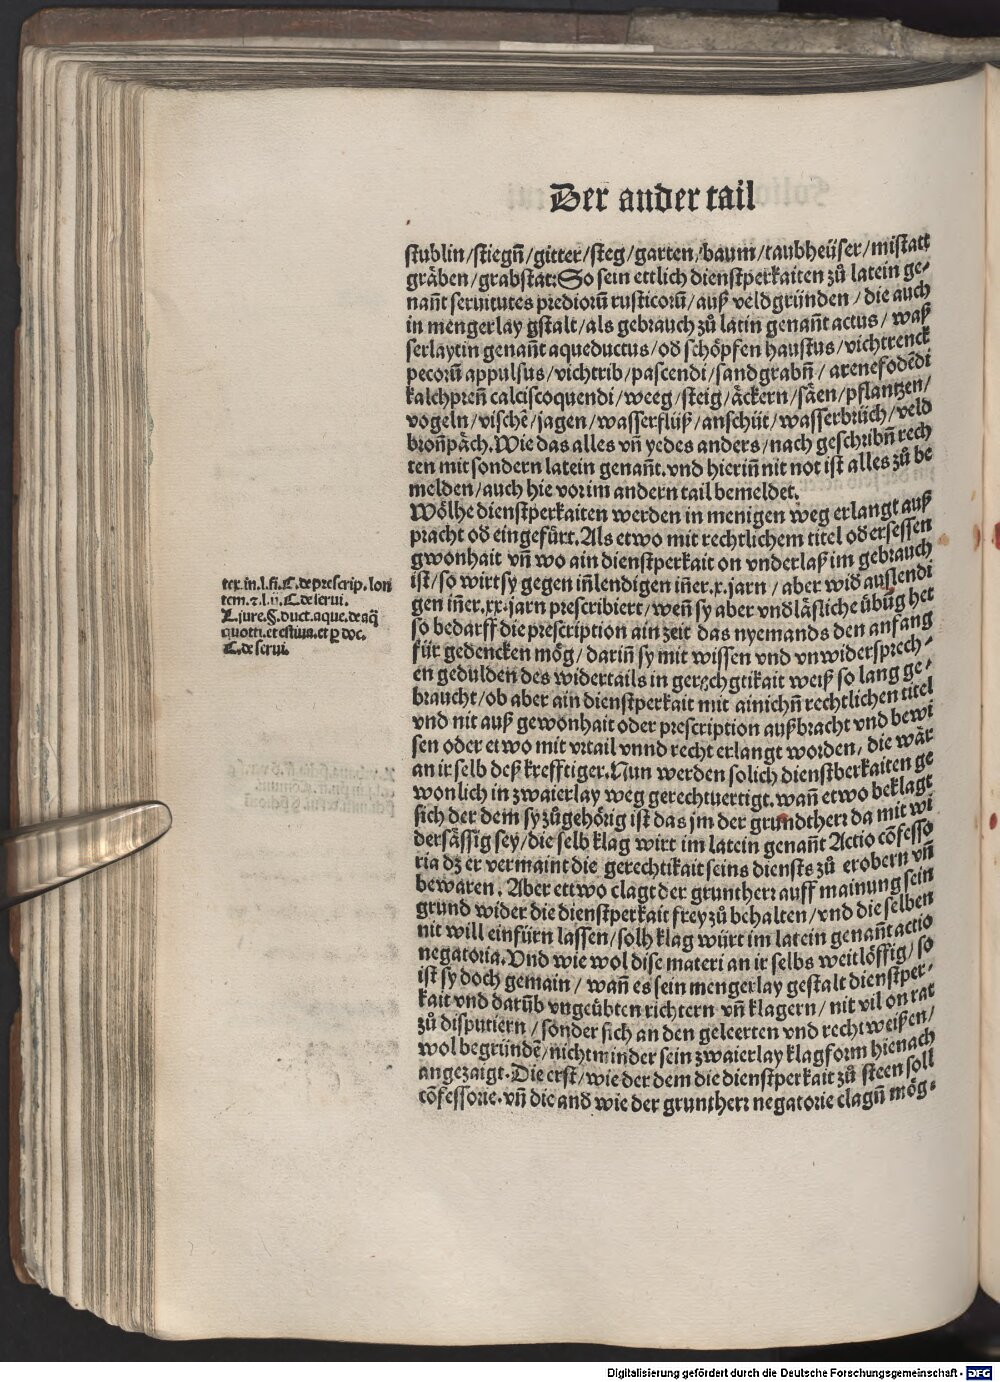 Der ander tail
stublin/stiegn̄/gitter/steg/garten/baum/taubheüser/mistatt
gräben/grabstat: So sein ettlich dienstperkaiten zů latein ge-
nan̄t seruitutes prediorū rusticorū/auß veldgründen/die auch
in mengerlay gstalt/als gebrauch zů latin genan̄t actus/waß
serlaytin genan̄t aqueductus/od schöpfen haustus/vichtrenck
pecorū appulsus/vichtrib/pascendi/sandgrabn̄/arenefodēdi
kalchpren̄ calciscoquendi/weeg/steig/äckern/säen/pflantzen/
vogeln/vischē/jagen/wasserflüß/anschüt/wasserbrüch/veld
bron̄päch. Wie das alles vn̄ yedes anders/nach geschribn̄ rech
ten mit sondern latein genan̄t. vnd hierin̄ nit not ist alles zů be
melden/auch hie vor im andern tail bemeldet.
Wölhe dienstperkaiten werden in menigen weg erlangt auß
pracht od eingefürt. Als etwo mit rechtlichem titel od ersessen
gwonhait vn̄ wo ain dienstperkait on vnderlaß im gebrauch
ist/so wirt sy gegen in̄lendigen in̄er .x. jarn/aber wid auslendi
gen in̄er .xx. jarn prescribiert/wen̄ sy aber vndläsliche übūg het
so bedarff die prescription ain zeit das nyemands den anfang
für gedencken mög/darin̄ sy mit wissen vnd vnwidersprech-
en gedulden des widertails in gerechgtikait weiß so lang ge-
braucht/ob aber ain dienstperkait mit ainichn̄ rechtlichen titel
vnd nit auß gewonhait oder prescription außbracht vnd bewi
sen oder etwo mit vrtail vnnd recht erlangt worden, die wär
an ir selb deß krefftiger. Nun werden solich dienstberkaiten ge
wonlich in zwaierlay weg gerechtuertigt. wan̄ etwo beklagt
sich der dem sy zůgehörig ist das jm der grundtherr da mit wi
dersässig sey/die selb klag wirt im latein genan̄t Actio cōfesso
ria dz er vermaint die gerechtikait seins diensts zů erobern vn̄
bewaren. Aber ettwo clagt der gruntherr auff mainung sein
grund wider die dienstperkait frey zů behalten/vnd die selben
nit will einfürn lassen/solh klag würt im latein genan̄t actio
negatoria. Vnd wie wol dise materi an ir selbs weitlöffig/so
ist sy doch gemain/wan̄ es sein mengerlay gestalt dienstper-
kait vnd darūb vngeübten richtern vn̄ klagern/nit vil on rat
zů disputiern/sonder sich an den geleerten vnd recht weißen/
wol begründē/nicht minder sein zwaierlay klagform hienach
angezaigt. Die erst/wie der dem die dienstperkait zů steen soll
cōfessorie. vn̄ die and wie der gruntherr negatorie clagn̄ mög-
tex. in. l. fi. C. de prescrip. lon
tem. ⁊. l. ij. C. de serui.
L. jure. §. duct. aque. de aq̄
quotti. et estiua. et p doc.
C. de serui.
Digitalisierung gefördert durch die Deutsche Forschungsgemeinschaft - DFG